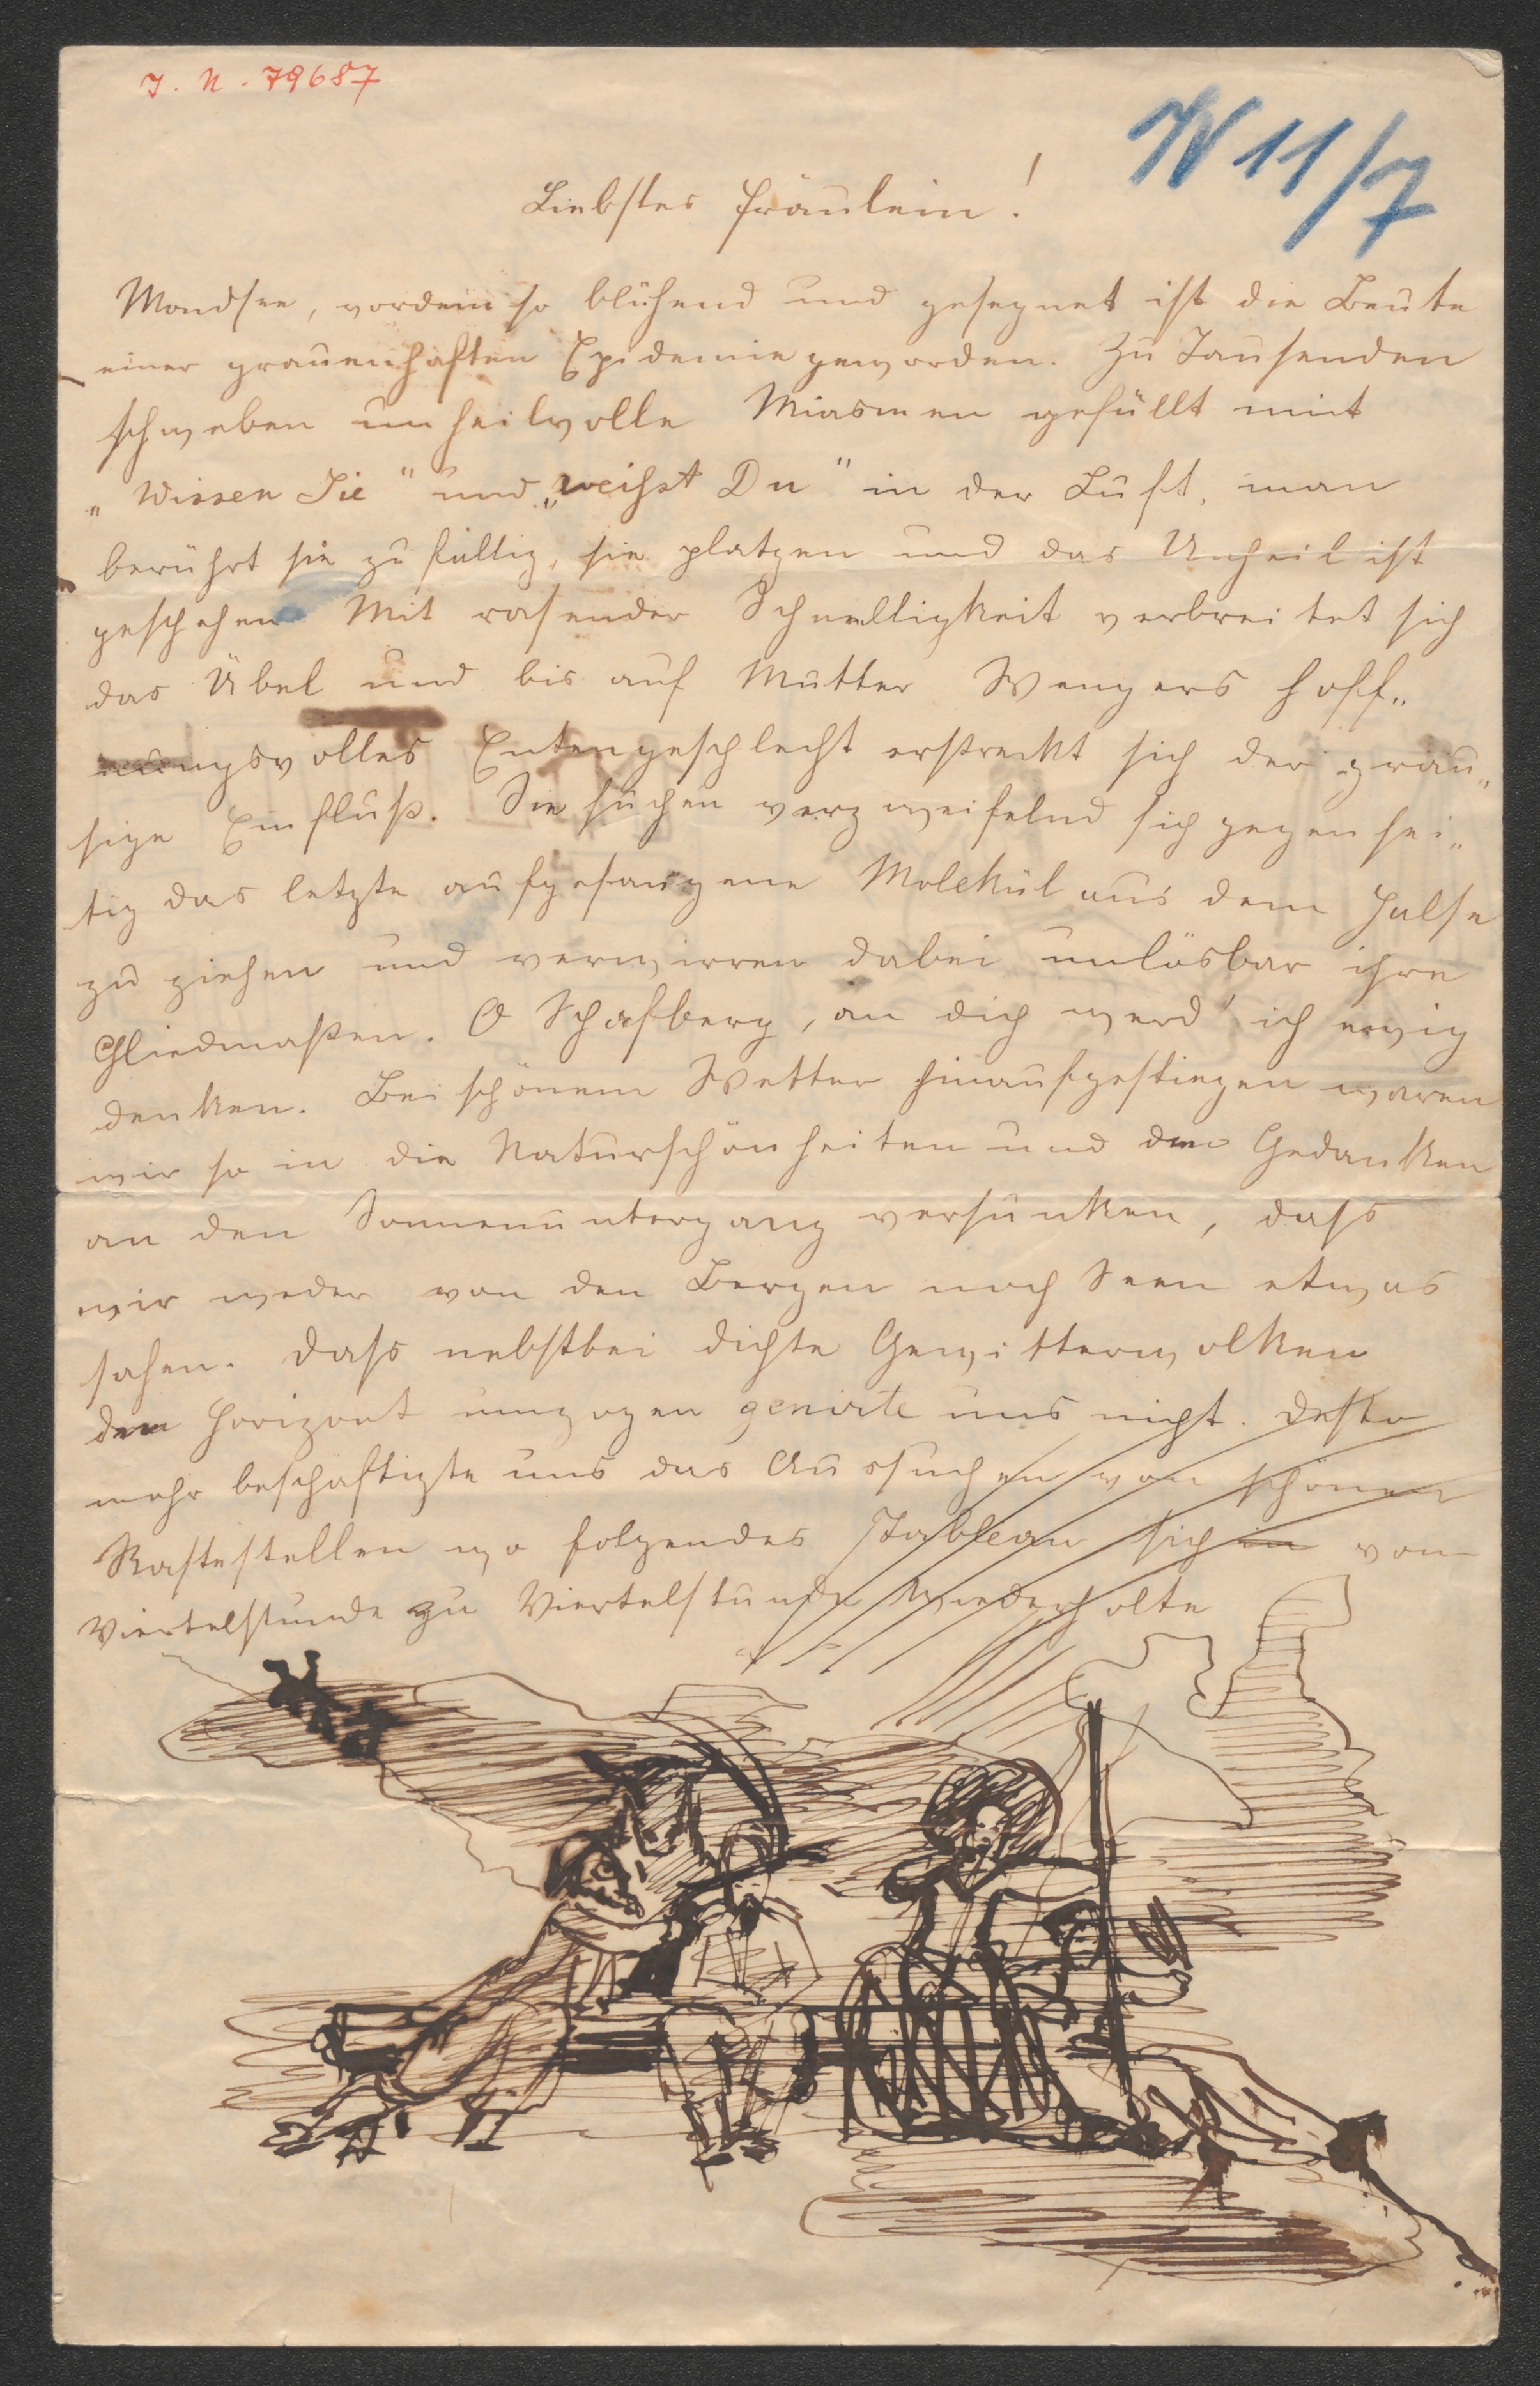 J. N. 79687
IV 11/7
Liebstes Fräulein!
Mondsee, vordem so blühend und gesegnet ist die Beute
einer grauenhaften Epidemie geworden. Zu Tausenden
schweben unheilvolle Miasmen gefüllt mit
„Wissen Sie" und „weißt Du" in der Luft, man
berührt sie zufällig, sie platzen und das Unheil ist
geschehen. Mit rasender Schnelligkeit verbreitet sich
das Übel und bis auf Mutter Wengers hoff„
nungsvolles Entengeschlecht erstreckt sich der grau„
sige Einfluß. Sie suchen verzweifelnd sich gegensei„
tig das letzte aufgefangene Molekül aus dem Halse
zu ziehen und verwirren dabei unlösbar ihre
Gliedmaßen. O Schafberg, an dich werd' ich ewig
denken. Bei schönem Wetter hinaufgestiegen waren
wir so in die Naturschönheiten und den Gedanken
an den Sonnenuntergang versunken, dass
wir weder von den Bergen noch Seen etwas
sahen. Dass nebstbei dichte Gewitterwolken
den Horizont umzogen genirte uns nicht. Desto
mehr beschäftigte uns das Aussuchen von schönen
Rastestellen wo folgendes Tableau sich in von
Viertelstunde zu Viertelstunde wiederholte